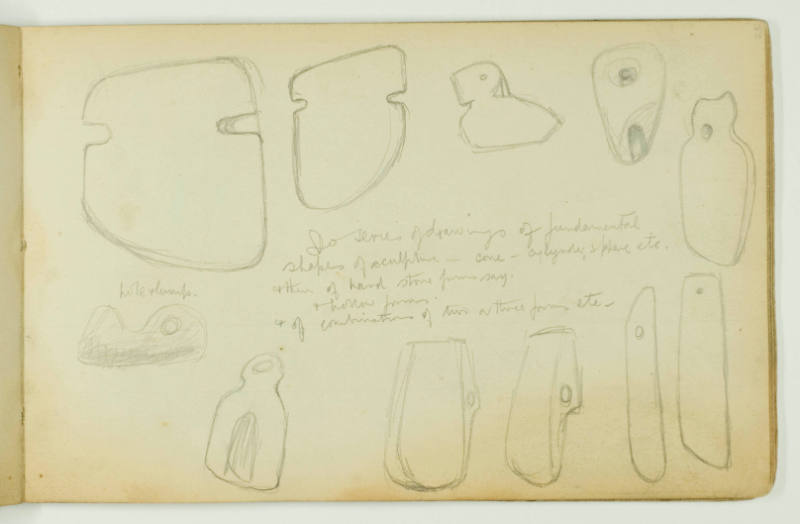 Do series of drawings of fundamental
shapes of sculpture – cone – cylinder, sphere etc.
+ then of hard stone forms say.
+ hollow forms.
+ of combinations of two or three forms etc –
hole + lumps.